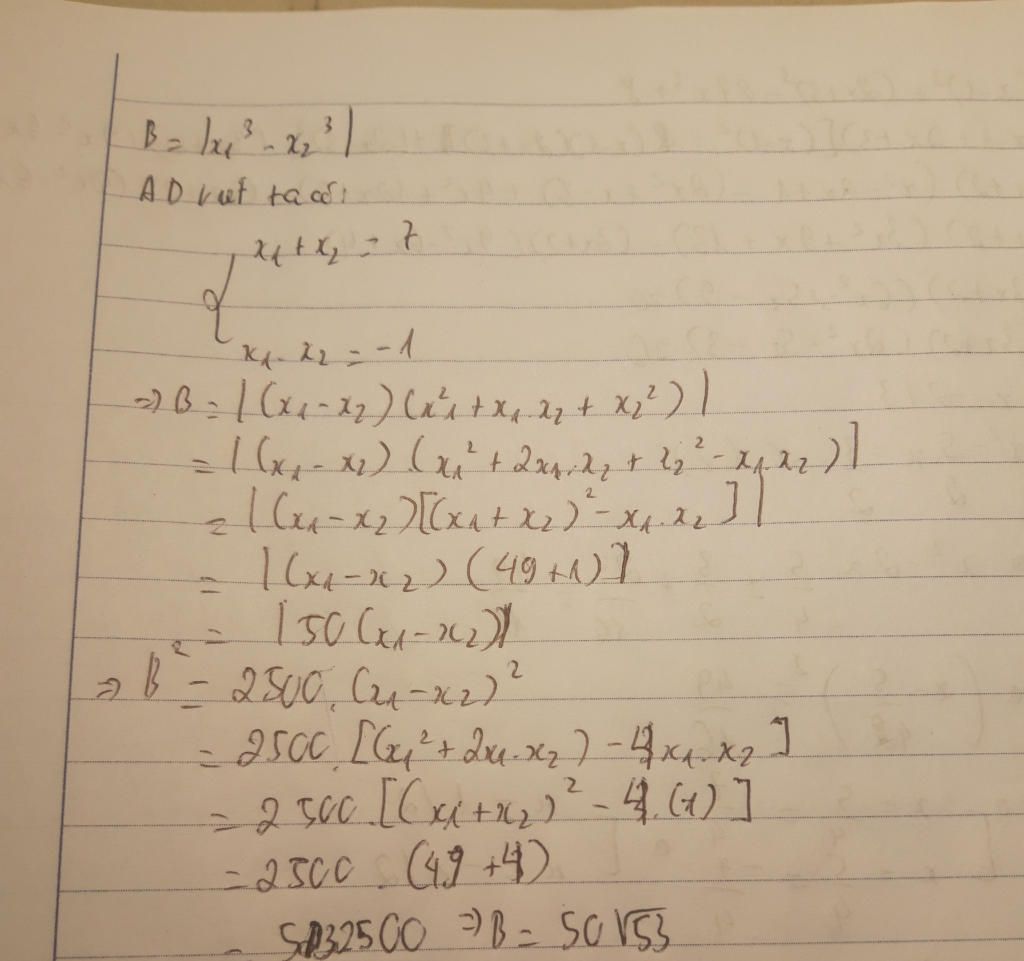 B = |x₁³ - x₂³|
AD viét ta có:
x₁ + x₂ = 7
x₁. x₂ = -1
=> B = |(x₁ - x₂)(x₁² + x₁.x₂ + x₂²)|
= |(x₁ - x₂)(x₁² + 2x₁.x₂ + x₂² - x₁.x₂)|
= |(x₁ - x₂)[(x₁ + x₂)² - x₁.x₂]|
= |(x₁ - x₂)(49 + 1)|
= |50(x₁ - x₂)|
=> B² = 2500.(x₁ - x₂)²
= 2500.[(x₁² + 2x₁.x₂) - 4x₁.x₂]
= 2500.[(x₁ + x₂)² - 4.(1)]
= 2500.(49 + 4)
= 132500 => B = 50√53